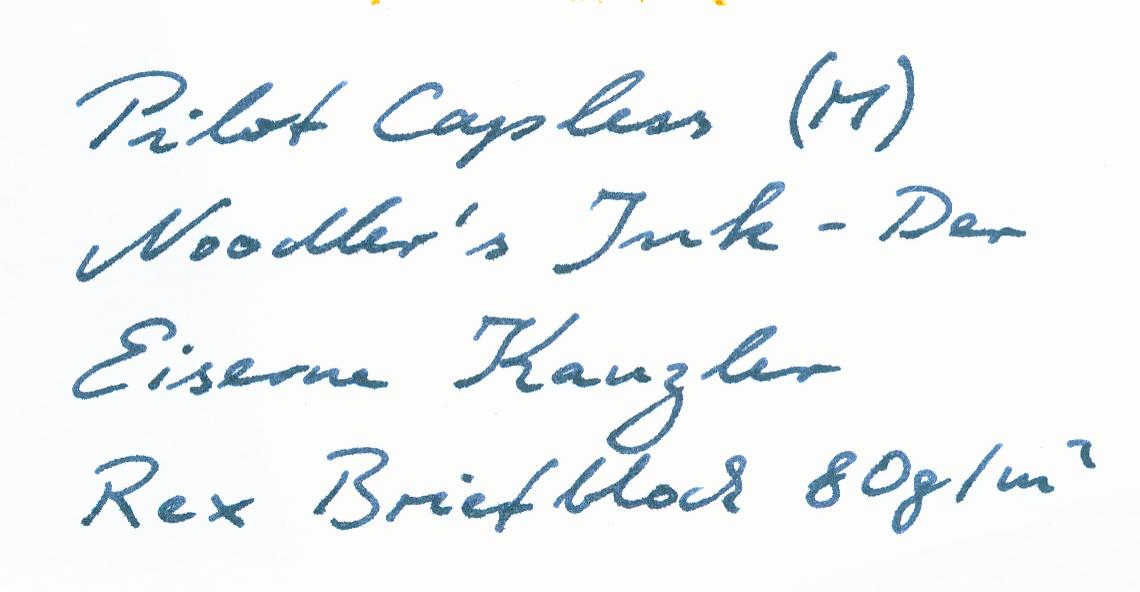 Pilot Capless (M)
Noodler's Ink - Der
Eiserne Kanzler
Rex Briefblock 80g/m²